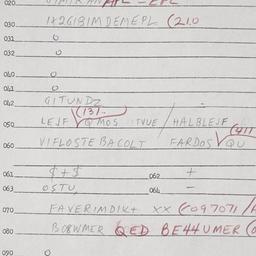 020
030 1X2G1BIMDEMEPL (21.0
031 0
032 0
040 0
041 0
042 GITUNDZ
(13).
050 LEJF QMOS TVUE / HALBLEJF (411
060 VIFLOSTEBACOLT FARDOS QU
061 $+$ 062 +
063 OSTU 064 –
070 FAVERIMDIK+ XX (097071/
080 BOBWMER QED BE44UMER
090 0